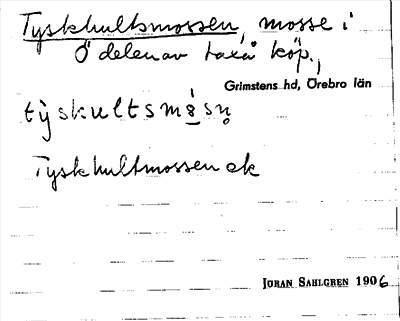 Tyskhultsmossen, mosse i
Ö delen av Laxå köp.,
Grimstens hd, Örebro län
tỳskultsmå̀sn̥
Tyskhultmossen ek
JOHAN SAHLGREN 1906